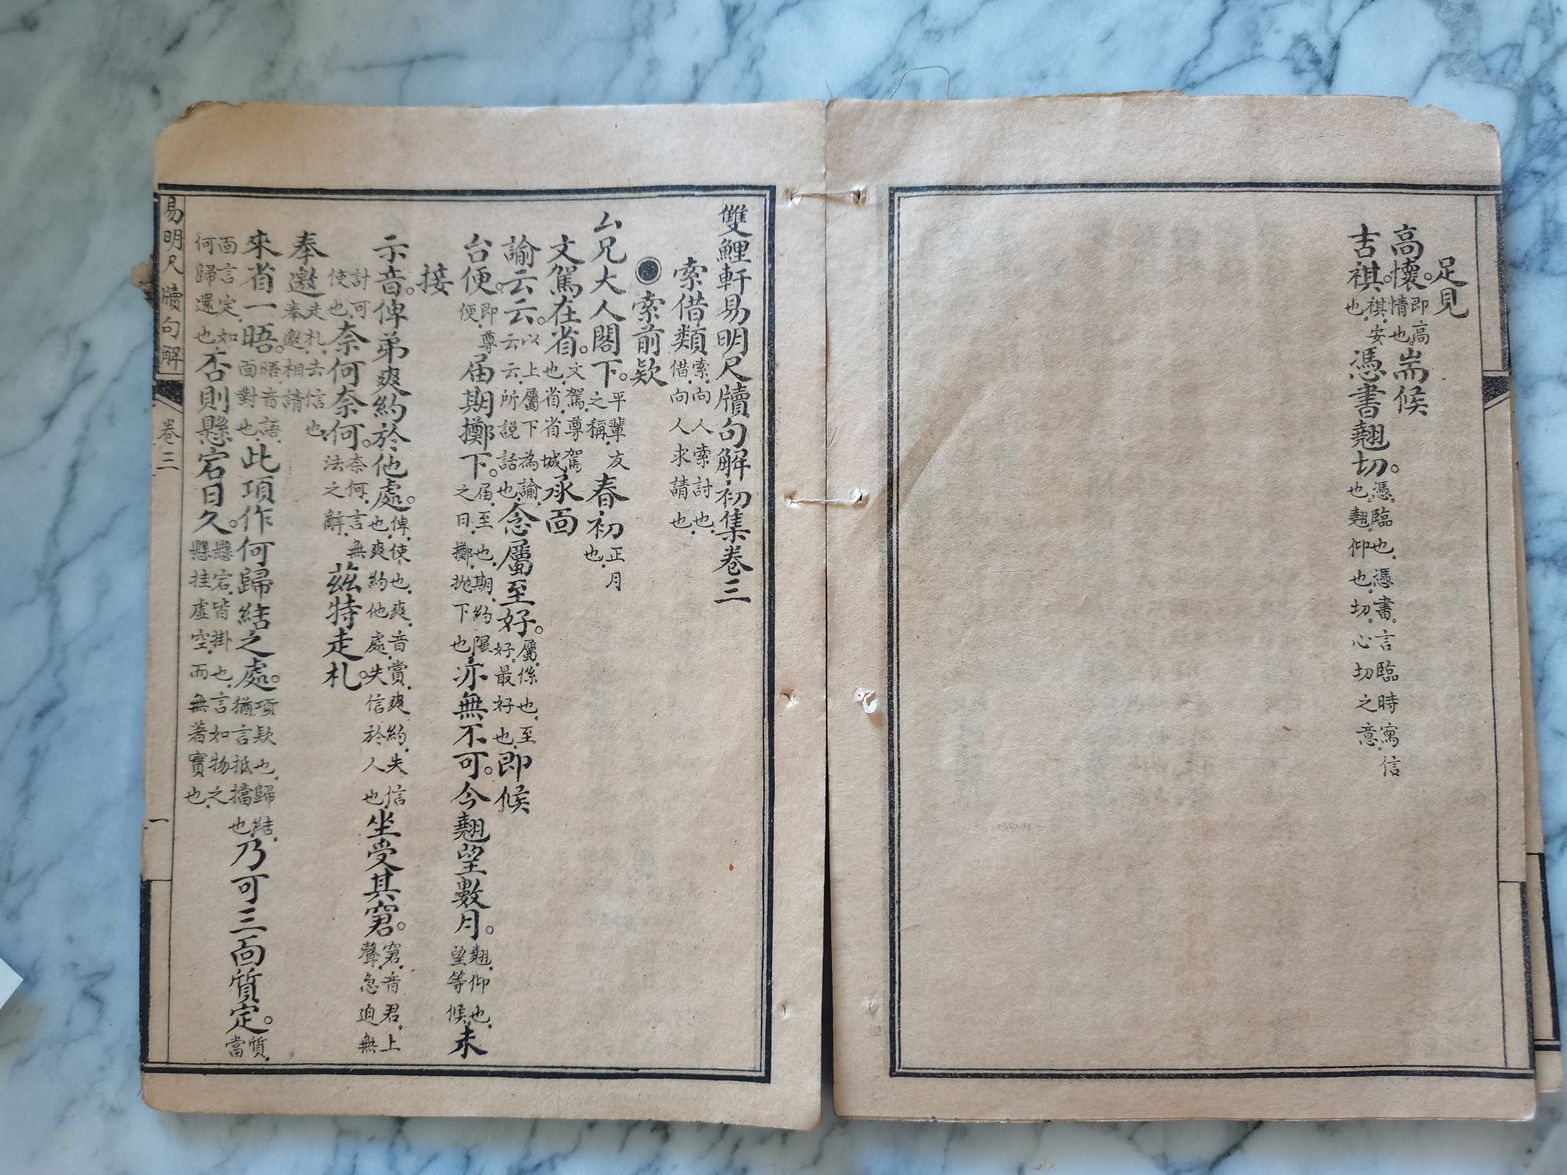 足見
高懷。即高情也。耑候
吉祺。祺,安也。憑書翹切。憑,臨也,憑書,言臨時寫信也,翹,仰也,切,心切之意。
雙鯉軒易明尺牘句解初集卷三
索借類索,向人索討也。借,向人求請也。
◉索前欵
厶兄大人閣下。平輩友之稱。春初正月也。
文駕在省。文駕,尊駕也,省,省城。承面
諭云云。以上屬下為諭,云云,所說話也。念屬至好。屬,係也,至好,最好也。即候
台便。即尊便。屆期擲下。屆,至也,期,約限之日,擲,拋下也。亦無不可。今翹望數月。翹,仰也,望,等候。未
接
示音。俾弟爽約於他處。俾,使也,爽,音賞,爽約,失信也,爽約他處,失信於人也。坐受其窘。窘,音君,上聲,急迫無
討可使也。奈何奈何。奈何,言無法之辭。茲特走札。
奉邀走札,去信也,奉邀,相請
來省一晤。晤,音語,面對也。此項作何歸結之處。項,欵也,歸結,猶言抵擋也。乃可三面質定。質,當
面言定,如何歸還也。否則懸宕日久。懸宕,皆掛也,言如物之懸挂虛空,而無著實也。
易明尺牘句解 卷三 一